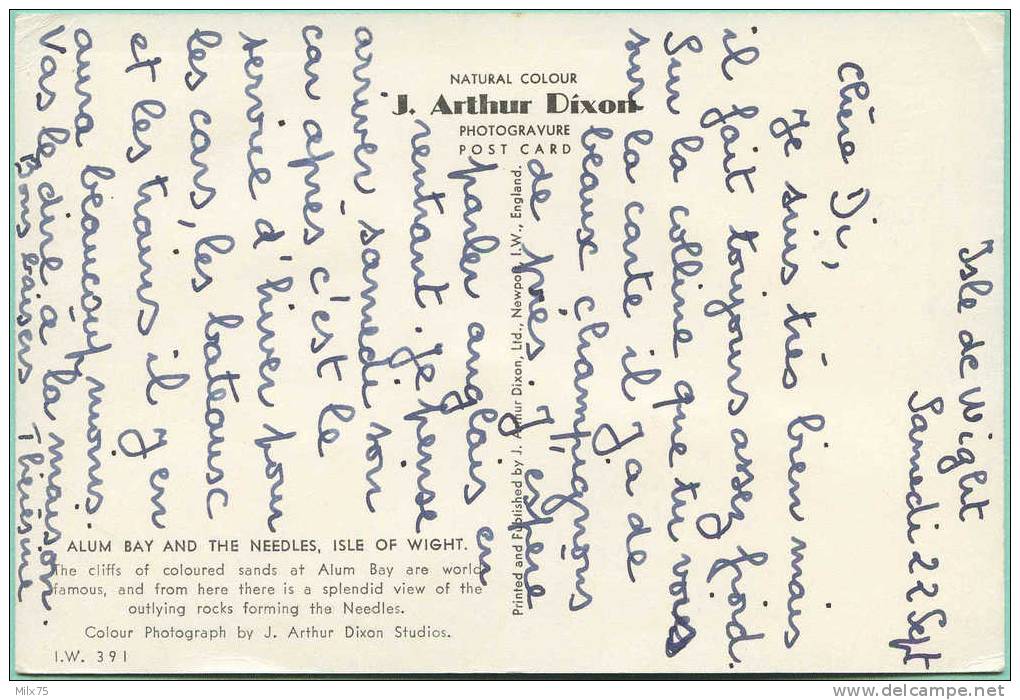 Isle de Wight
Samedi 22 Sept
Chère Di,
Je suis très bien mais
il fait toujours assez froid.
Sur la colline que tu vois
sur la carte il y a de
beaux champignons
de près. J'espère
parler anglais en
rentrant. Je pense
arriver samedi soir
car après c'est le
service d'hiver pour
les cars, les bateaux
et les trains il y en
aura beaucoup moins.
Vas le dire à la maison.
Bons baisers
NATURAL COLOUR
J. Arthur Dixon
PHOTOGRAVURE
POST CARD
Printed and Published by J. Arthur Dixon, Ltd., Newport, I.W., England.
ALUM BAY AND THE NEEDLES, ISLE OF WIGHT.
The cliffs of coloured sands at Alum Bay are world
famous, and from here there is a splendid view of the
outlying rocks forming the Needles.
Colour Photograph by J. Arthur Dixon Studios.
I.W. 391
Milx75
delcampe.net